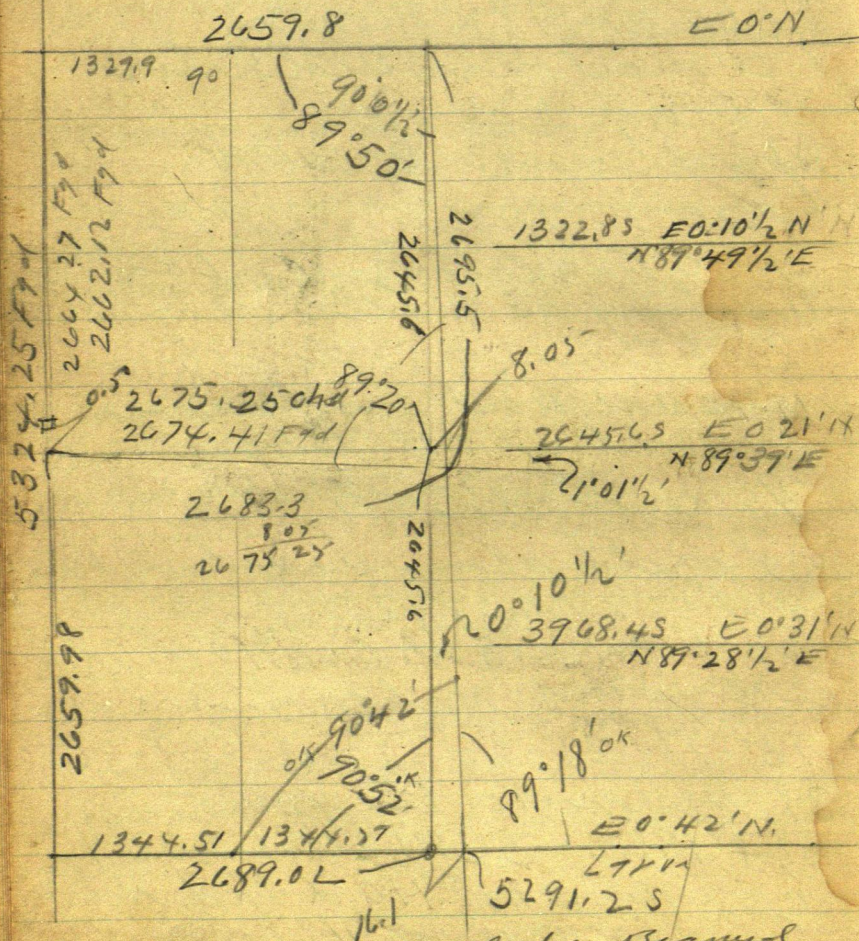 2659.8
E 0°N
1329.9
90
90°0½'
89°50'
2664.27 Fgd
2662.12 Fgd
5324.25 Fgd
2645.6
2695.5
1322.8 S E 0°10'½ N
N 89°49'½ E
8.05
0.5
2675.25 Chd
89°20
2674.41 Fgd
2645.6 S E 0 21' N
N 89°39' E
1°01½'
2683.3
8 05
26 75 25
2645.6
0°10'½'
3968.4 S E 0°31' N
N 89°28'½ E
2659.98
90°42'
ok
90°52'
ok
89°18' ok
1344.51
E 0°42' N.
2689.02
5291.2 S
16.1